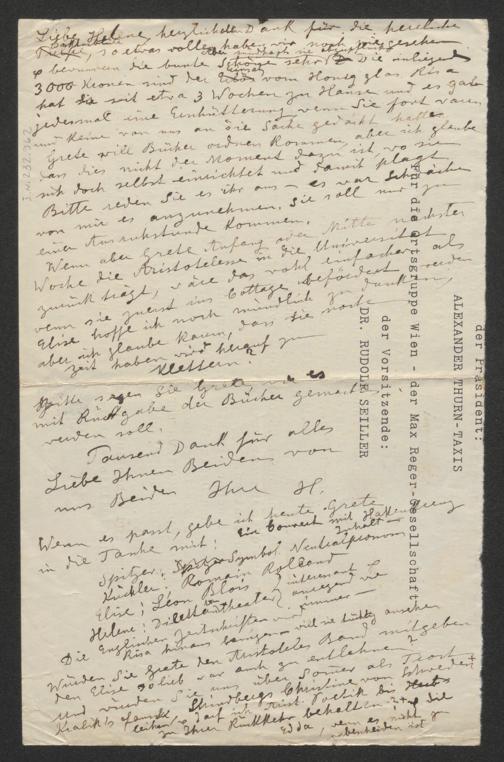 Liebe Helene, herzlichsten Dank für die herrliche
so etwas volles haben wir noch nie gesehen
bewundern die bunte Schöne sehr! Die anliegend
3000 Kronen sind der vom Honigglas Risa
hat sie seit etwa 3 Wochen zu Hause und es gab
jedesmal eine Erschütterung wenn Sie fort waren
und keine von uns an die Sache gedacht hatte.
Grete will Bücher ordnen kommen, aber ich glaube
dass dies nicht der Moment dazu ist, wo sie
sich doch selbst einrichtet und damit plagt.
Bitte reden Sie es ihr aus – es war Schwäche
von mir es anzunehmen. Sie soll nur zu
einer Ausruhstunde kommen.
Wenn aber Grete Anfang oder Mitte nächster
Woche die Aristotelesse in die Universität
zurück trägt, wäre das wohl einfacher als
wenn sie zuerst ins Cottage befördert werden
Elise hoffe ich noch mündlich zu danken,
aber ich glaube kaum, dass Sie noch
Zeit haben wird herauf zu
klettern!
Bitte sagen Sie Grete es
mit Rückgabe der Bücher gemacht
werden soll.
Tausend Dank für alles
Liebe Ihnen Beiden von
uns Beiden Ihre H.
Wenn es passt, gebe ich heute Grete
in die Tanke mit: Ein Couvert mit
Inhalt –
Spitzer: Symbol Neutralpronom
Küchler: Romain Rolland
Elise: Léon Blois
Helene: Dilettantentheater
Die Englischen Zeitschriften
Risa hinaus – will sie ansehen
Würden Sie Grete den Aristoteles Band mitgeben
den Elise so lieb war auch zu entlehnen?
Und würden Sie uns über Sommer als Trost
Kraliks Strindbergs Christine von Schweden
leihen, darf ich Arist. Poetik
zu Ihrer Rückkehr behalten und die
Edda, wenn es nicht zu
unbescheiden ist
der Präsident:
ALEXANDER THURN-TAXIS
Für die Ortsgruppe Wien - der Max Reger-Gesellschaft
der Vorsitzende:
DR. RUDOLF SEILLER